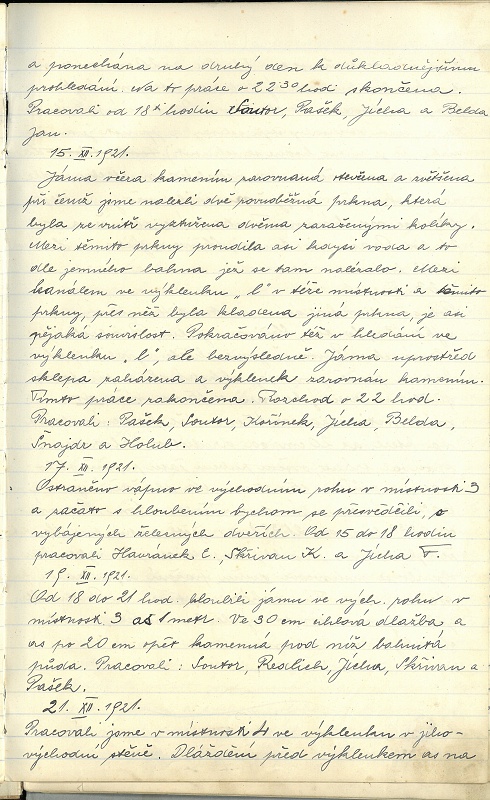 a ponechána na druhý den k důkladnějšímu
prohledání. Na to práce o 22³⁰ hod. skončena.
Pracovali od 18ᵗ hodin Soutor, Pašek, Jícha a Belda
Jan.
15. XII. 1921.
Jáma včera kamením zarovnaná otevřena a zvětšena
při čemž jsme nalezli dvě povuděžná prkna, která
byla ze vnitř vyztužena dvěma zaraženými kolíky.
Mezi těmito prkny proudila asi kdysi voda a to
dle jemného bahna jež se tam nalézalo. Mezi
kanálem ve výklenku „l" v téže místnosti a těmito
prkny, přes něž byla kladena jiná prkna, je asi
nějaká souvislost. Pokračováno též v hledání ve
výklenku „l", ale bezvýsledně. Jáma uprostřed
sklepa zaházena a výklenek zarovnán kamením.
Tímto práce zakončena. Rozchod o 22 hod.
Pracovali: Pašek, Soutor, Kořínek, Jícha, Belda,
Šnajdr a Holub.
17. XII. 1921.
Ostraněno vápno ve východním rohu v místnosti 3
a začato s hloubením bychom se přesvědčili, o
vybájených železných dveřích. Od 15 do 18 hodin
pracovali Havránek C., Skřivan K. a Jícha F.
19. XII. 1921.
Od 18 do 21 hod. hloubili jámu ve vých. rohu v
místnosti 3 as 1 metr. Ve 30 cm cihlová dlažba a
as po 20 cm opět kamenná pod níž bahnitá
půda. Pracovali: Soutor, Redlich, Jícha, Skřivan a
Pašek.
21. XII. 1921.
Pracovali jsme v místnosti 4 ve výklenku v jiho-
východní stěně. Dláždění před výklenkem as na